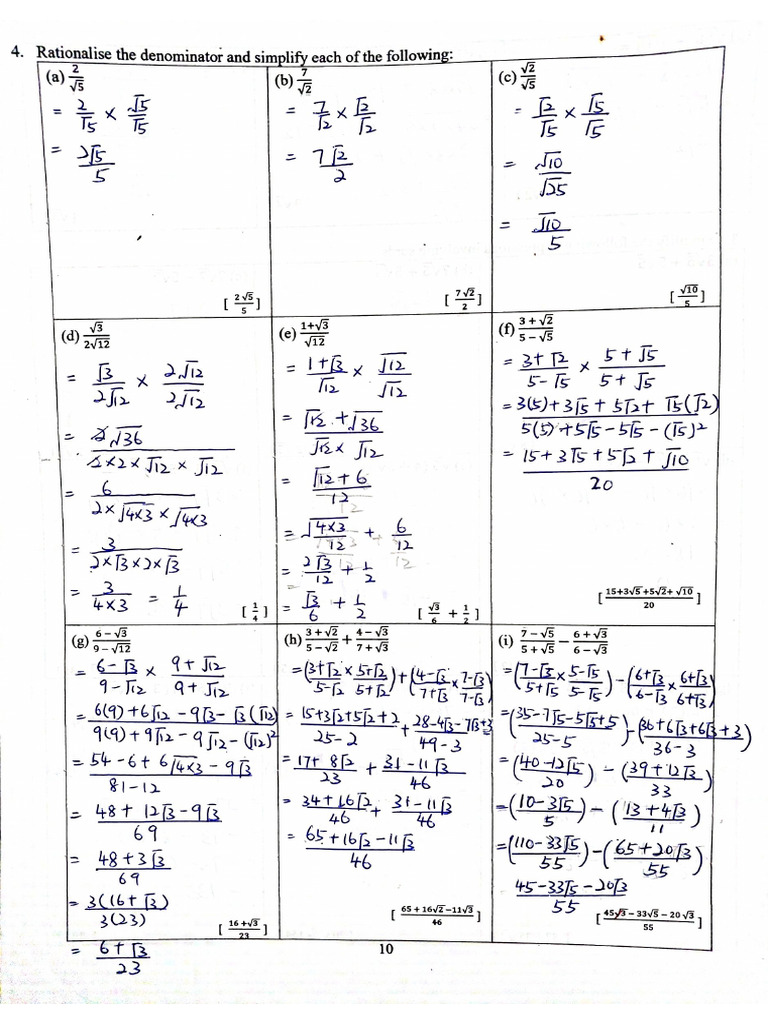 4. Rationalise the denominator and simplify each of the following:
(a) 2/√5
= 2/√5 × √5/√5
= 2√5/5
[ 2√5/5 ]
(b) 7/√2
= 7/√2 × √2/√2
= 7√2/2
[ 7√2/2 ]
(c) √2/√5
= √2/√5 × √5/√5
= √10/√25
= √10/5
[ √10/5 ]
(d) √3/2√12
= √3/2√12 × 2√12/2√12
= 2√36/2×2×√12×√12
= 6/2×√4×3×√4×3
= 3/2×√3×2×√3
= 3/4×3 = 1/4
[ 1/4 ]
(e) 1+√3/√12
= 1+√3/√12 × √12/√12
= √12+√36/√12×√12
= √12+6/12
= √4×3/12 + 6/12
= 2√3/12 + 1/2
= √3/6 + 1/2
[ √3/6 + 1/2 ]
(f) 3+√2/5−√5
= 3+√2/5−√5 × 5+√5/5+√5
= 3(5)+3√5+5√2+√5(√2)/5(5)+5√5−5√5−(√5)²
= 15+3√5+5√2+√10/20
[ 15+3√5+5√2+√10/20 ]
(g) 6−√3/9−√12
= 6−√3/9−√12 × 9+√12/9+√12
= 6(9)+6√12−9√3−√3(√12)/9(9)+9√12−9√12−(√12)²
= 54−6+6√4×3−9√3/81−12
= 48+12√3−9√3/69
= 48+3√3/69
= 3(16+√3)/3(23)
= 6+√3/23
[ 16+√3/23 ]
(h) 3+√2/5−√2 + 4−√3/7+√3
= (3+√2/5−√2 × 5+√2/5+√2) + (4−√3/7+√3 × 7−√3/7−√3)
= 15+3√2+5√2+2/25−2 + 28−4√3−7√3+3/49−3
= 17+8√2/23 + 31−11√3/46
= 34+16√2/46 + 31−11√3/46
= 65+16√2−11√3/46
[ 65+16√2−11√3/46 ]
(i) 7−√5/5+√5 − 6+√3/6−√3
= (7−√3/5+√5 × 5−√5/5−√5) − (6+√3/6−√3 × 6+√3/6+√3)
= (35−7√5−5√5+5/25−5) − (36+6√3+6√3+3/36−3)
= (40−12√5/20) − (39+12√3/33)
= (10−3√5/5) − (13+4√3/11)
= (110−33√5/55) − (65+20√3/55)
45−33√5−20√3/55
[ 45√3−33√5−20√3/55 ]
10